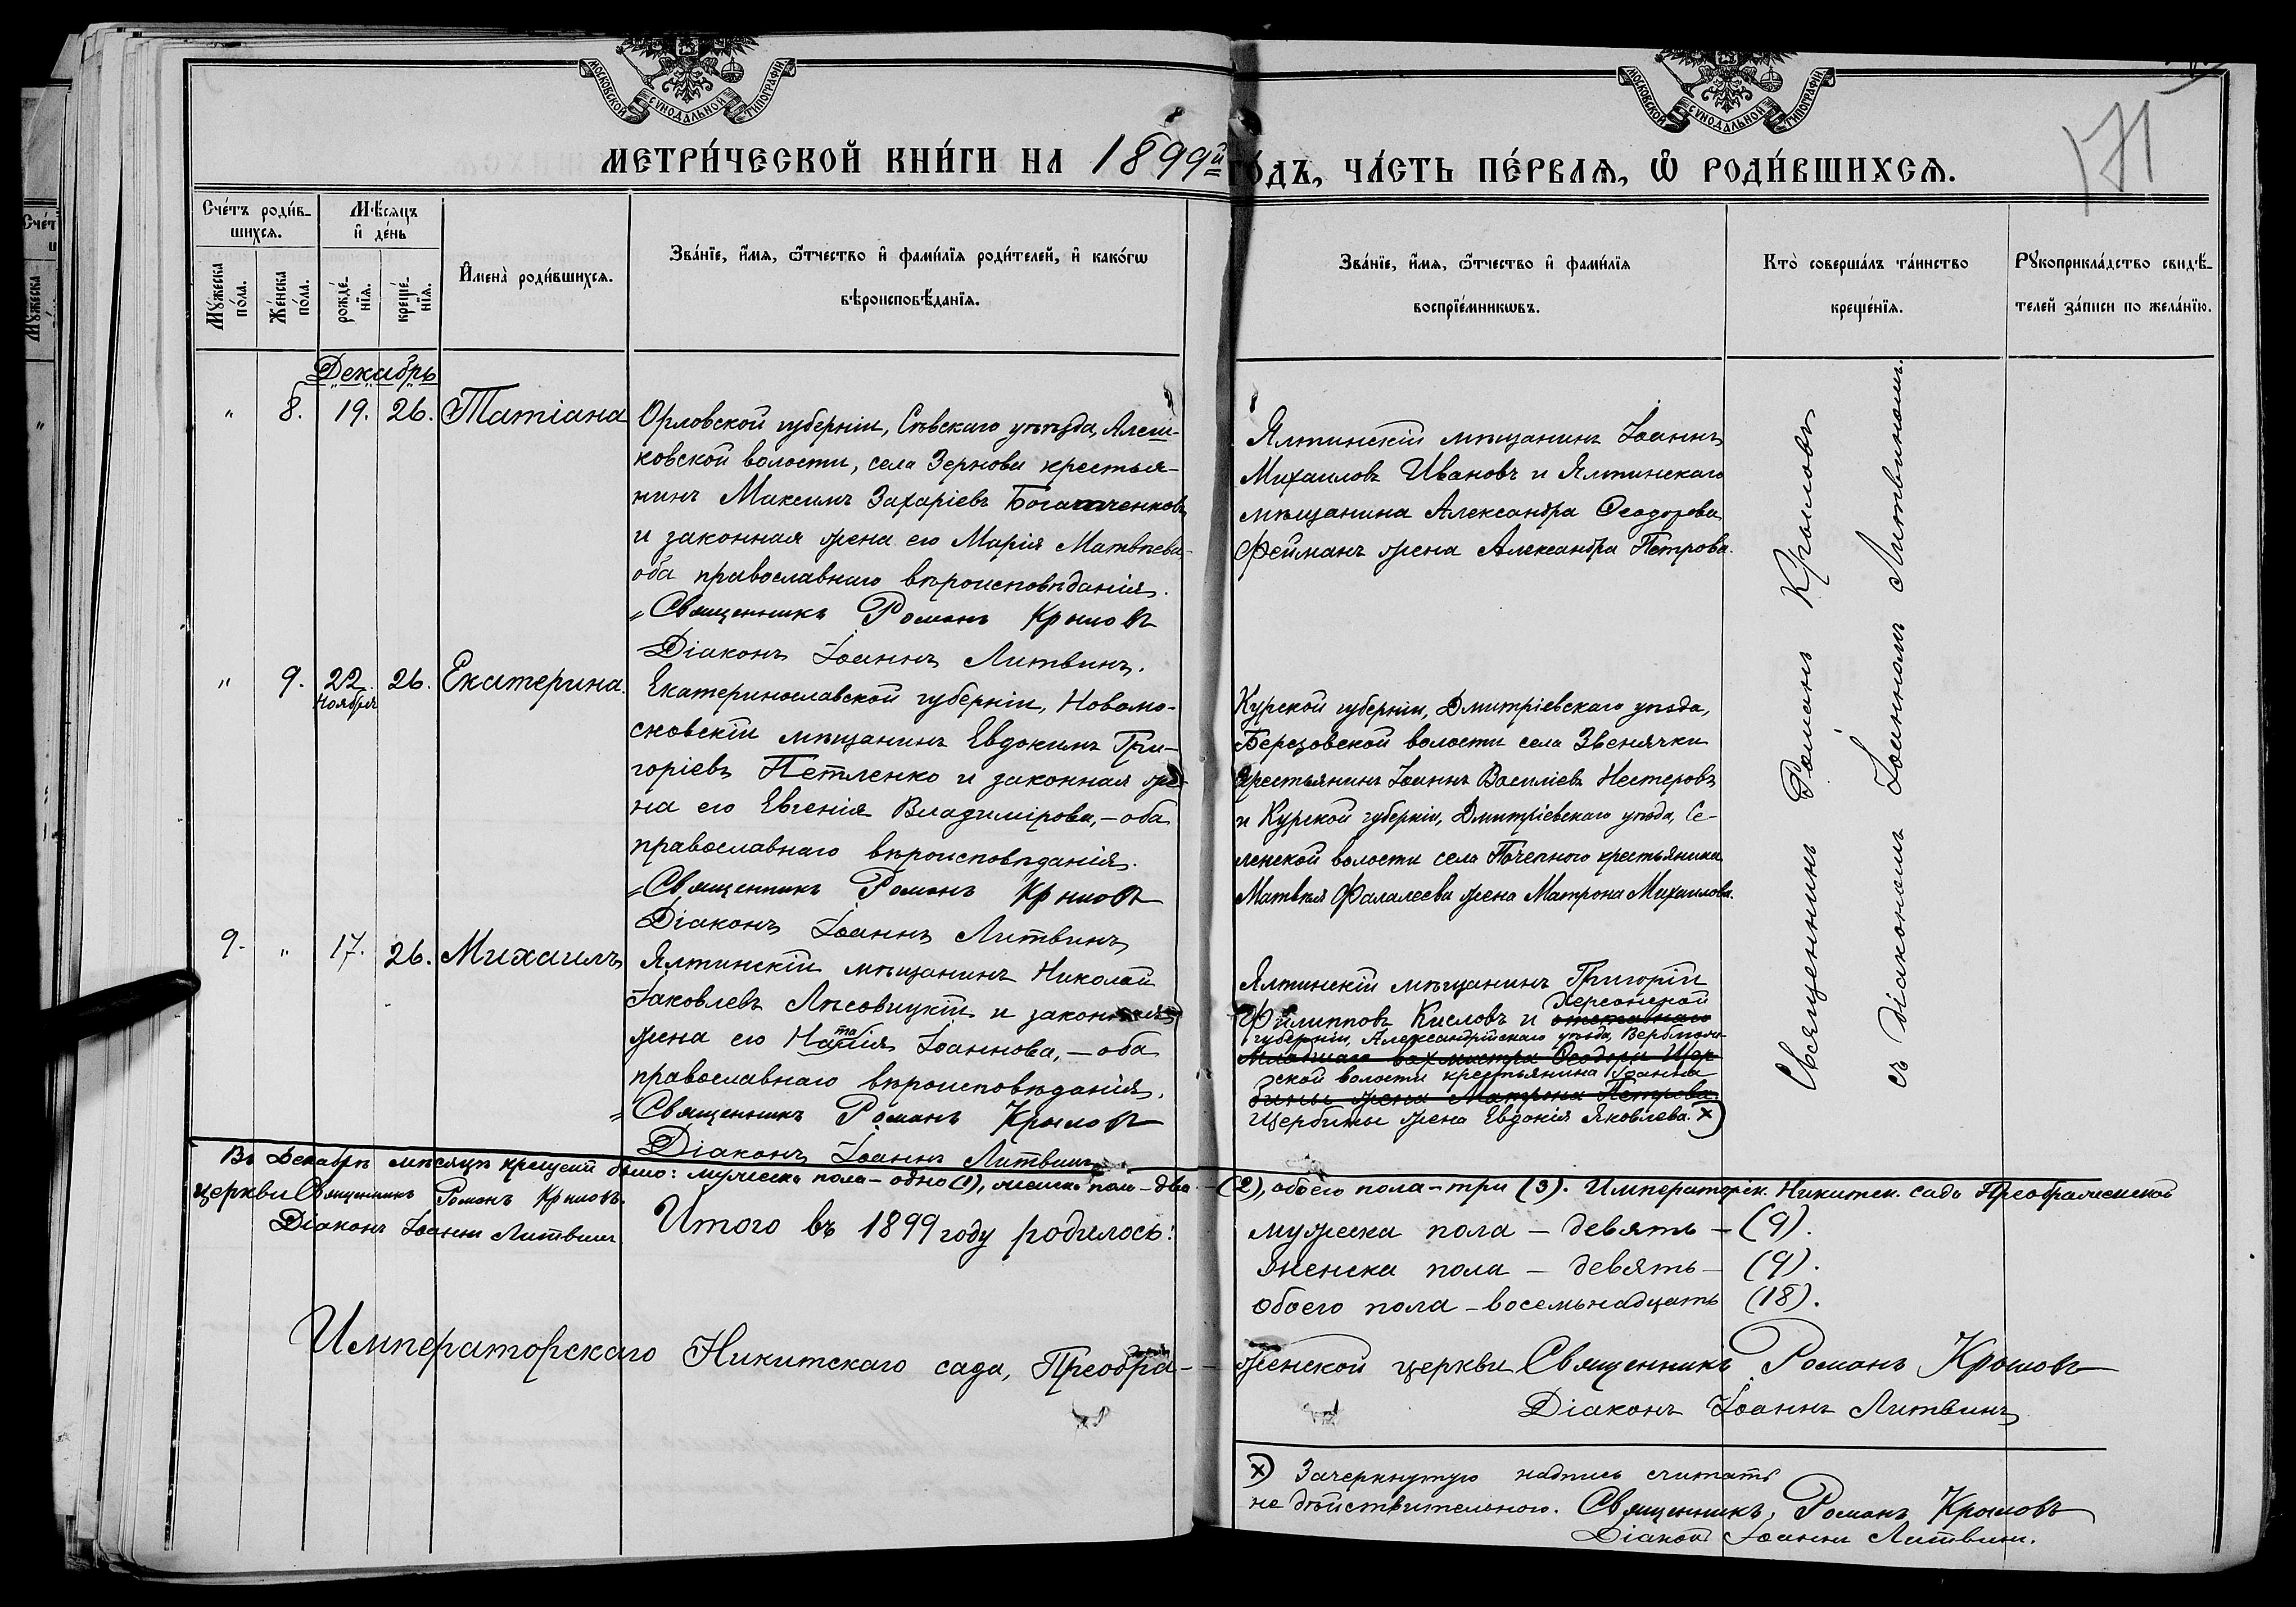 МОСКОВСКОЙ СѴНОДАЛЬНОЙ ТИПОГРАФІИ
МОСКОВСКОЙ СѴНОДАЛЬНОЙ ТИПОГРАФІИ
МЕТРИ́ЧЕСКОЙ КНИ́ГИ НА 1899й ГО́ДЪ, ЧА́СТЬ ПЕ́РВАѦ, Ѡ҆ РОДИ́ВШИХСѦ.
171
Сче́тъ роди́в-
шихсѧ.
Мѣ́сѧцъ
и҆ де́нь
Мꙋ́жеска по́ла.
Же́нска по́ла.
рожде́-нїѧ.
креще́-нїѧ.
И҆мена̀ роди́вшихсѧ.
Зва́нїе, и҆́мѧ, ѻ҆́тчество и҆ фами́лїѧ роди́телей, и҆ како́гѡ
вѣроисповѣ́данїѧ.
Зва́нїе, и҆́мѧ, ѻ҆́тчество и҆ фами́лїѧ
воспрїе́мникѡвъ.
Кто̀ соверша́лъ та́инство
креще́нїѧ.
Рꙋкоприкла́дство свидѣ́-
телей за́писи по жела́нїю.
Декабрь
" 8. 19. 26. Татіана
Орловской губерніи, Сѣвскаго уѣзда, Алеш-
ковской волости, села Зернова крестья-
нинъ Максимъ Захаріевъ Богатченковъ
и законная жена его Марія Матвѣева-
оба православнаго вѣроисповѣданія.
Священникъ Романъ Крыловъ
Діаконъ Іоаннъ Литвинъ.
Ялтинскій мѣщанинъ Іоаннъ
Михаиловъ Ивановъ и Ялтинскаго
мѣщанина Александра Ѳеодорова
Фейманъ жена Александра Петрова.
" 9. 22 Ноября 26. Екатерина.
Екатеринославской губерніи, Новомо-
сковскій мѣщанинъ Евдокимъ Гри-
горіевъ Петленко и законная же-
на его Евгенія Владимірова, – оба
православнаго вѣроисповѣданія.
Священникъ Романъ Крыловъ
Діаконъ Іоаннъ Литвинъ
Курской губерніи, Дмитріевскаго уѣзда,
Березовской волости села Звенячки
крестьянинъ Іоаннъ Василіевъ Нестеровъ
и Курской губерніи, Дмитріевскаго уѣзда, Се-
ленской волости села Почепного крестьянина
Матвѣя Фалалеева жена Матрона Михаилова.
9. " 17. 26. Михаилъ
Ялтинскій мѣщанинъ Николай
Іаковлевъ Лѣсовицкій и законная
жена его Наталія Іоаннова, – оба
православнаго вѣроисповѣданія.
Священникъ Романъ Крыловъ
Діаконъ Іоаннъ Литвинъ
Ялтинскій мѣщанинъ Григорій
Филипповъ Кисловъ и отставнаго Херсонской
губерніи, Александрійскаго уѣзда, Верблюж-
младшаго вахмистра Ѳеодора Щер-
ской волости крестьянина Іоанна
бины жена Матрона Петрова
Щербины жена Евдокія Яковлева. х)
Священникъ Романъ Крыловъ
съ діакономъ Іоанномъ Литвиномъ.
Въ Декабрѣ мѣсяцѣ крещеній было: мужеска пола – одно (1), женска пола – два – (2), обоего пола – три (3). Императорск. Никитск. сада Преображенской
церкви Священникъ Романъ Крыловъ.
Діаконъ Іоаннъ Литвинъ
Итого въ 1899 году родилось: мужеска пола – девять – (9).
женска пола – девять – (9).
обоего пола – восемьнадцать (18).
Императорскаго Никитскаго сада, Преобра- женской церкви Священникъ Романъ Крыловъ
Діаконъ Іоаннъ Литвинъ
х) Зачеркнутую надпись считать
не дѣйствительною. Священникъ Романъ Крыловъ
Діаконъ Іоаннъ Литвинъ.